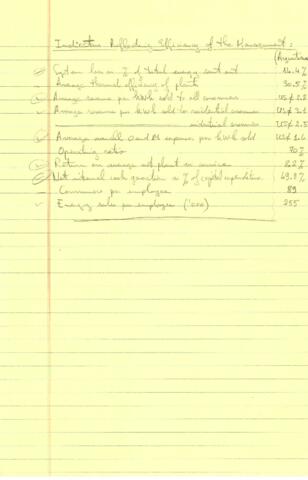 Indicators Reflecting Efficiency of the Management:
(Argentina
System loss as % of total energy sent out 16.4%
Average thermal efficiency of plants 30.5%
Average revenue per kWh sold to all consumers US¢
Average revenue per kWh sold to residential consumers US¢
industrial consumers US¢
Average annual O and M expenses per kWh sold US¢
Operating ratio 70%
Return on average net plant in service
Net internal cash generation as % of capital expenditures
Consumers per employee 89
Energy sales per employee ('000) 255